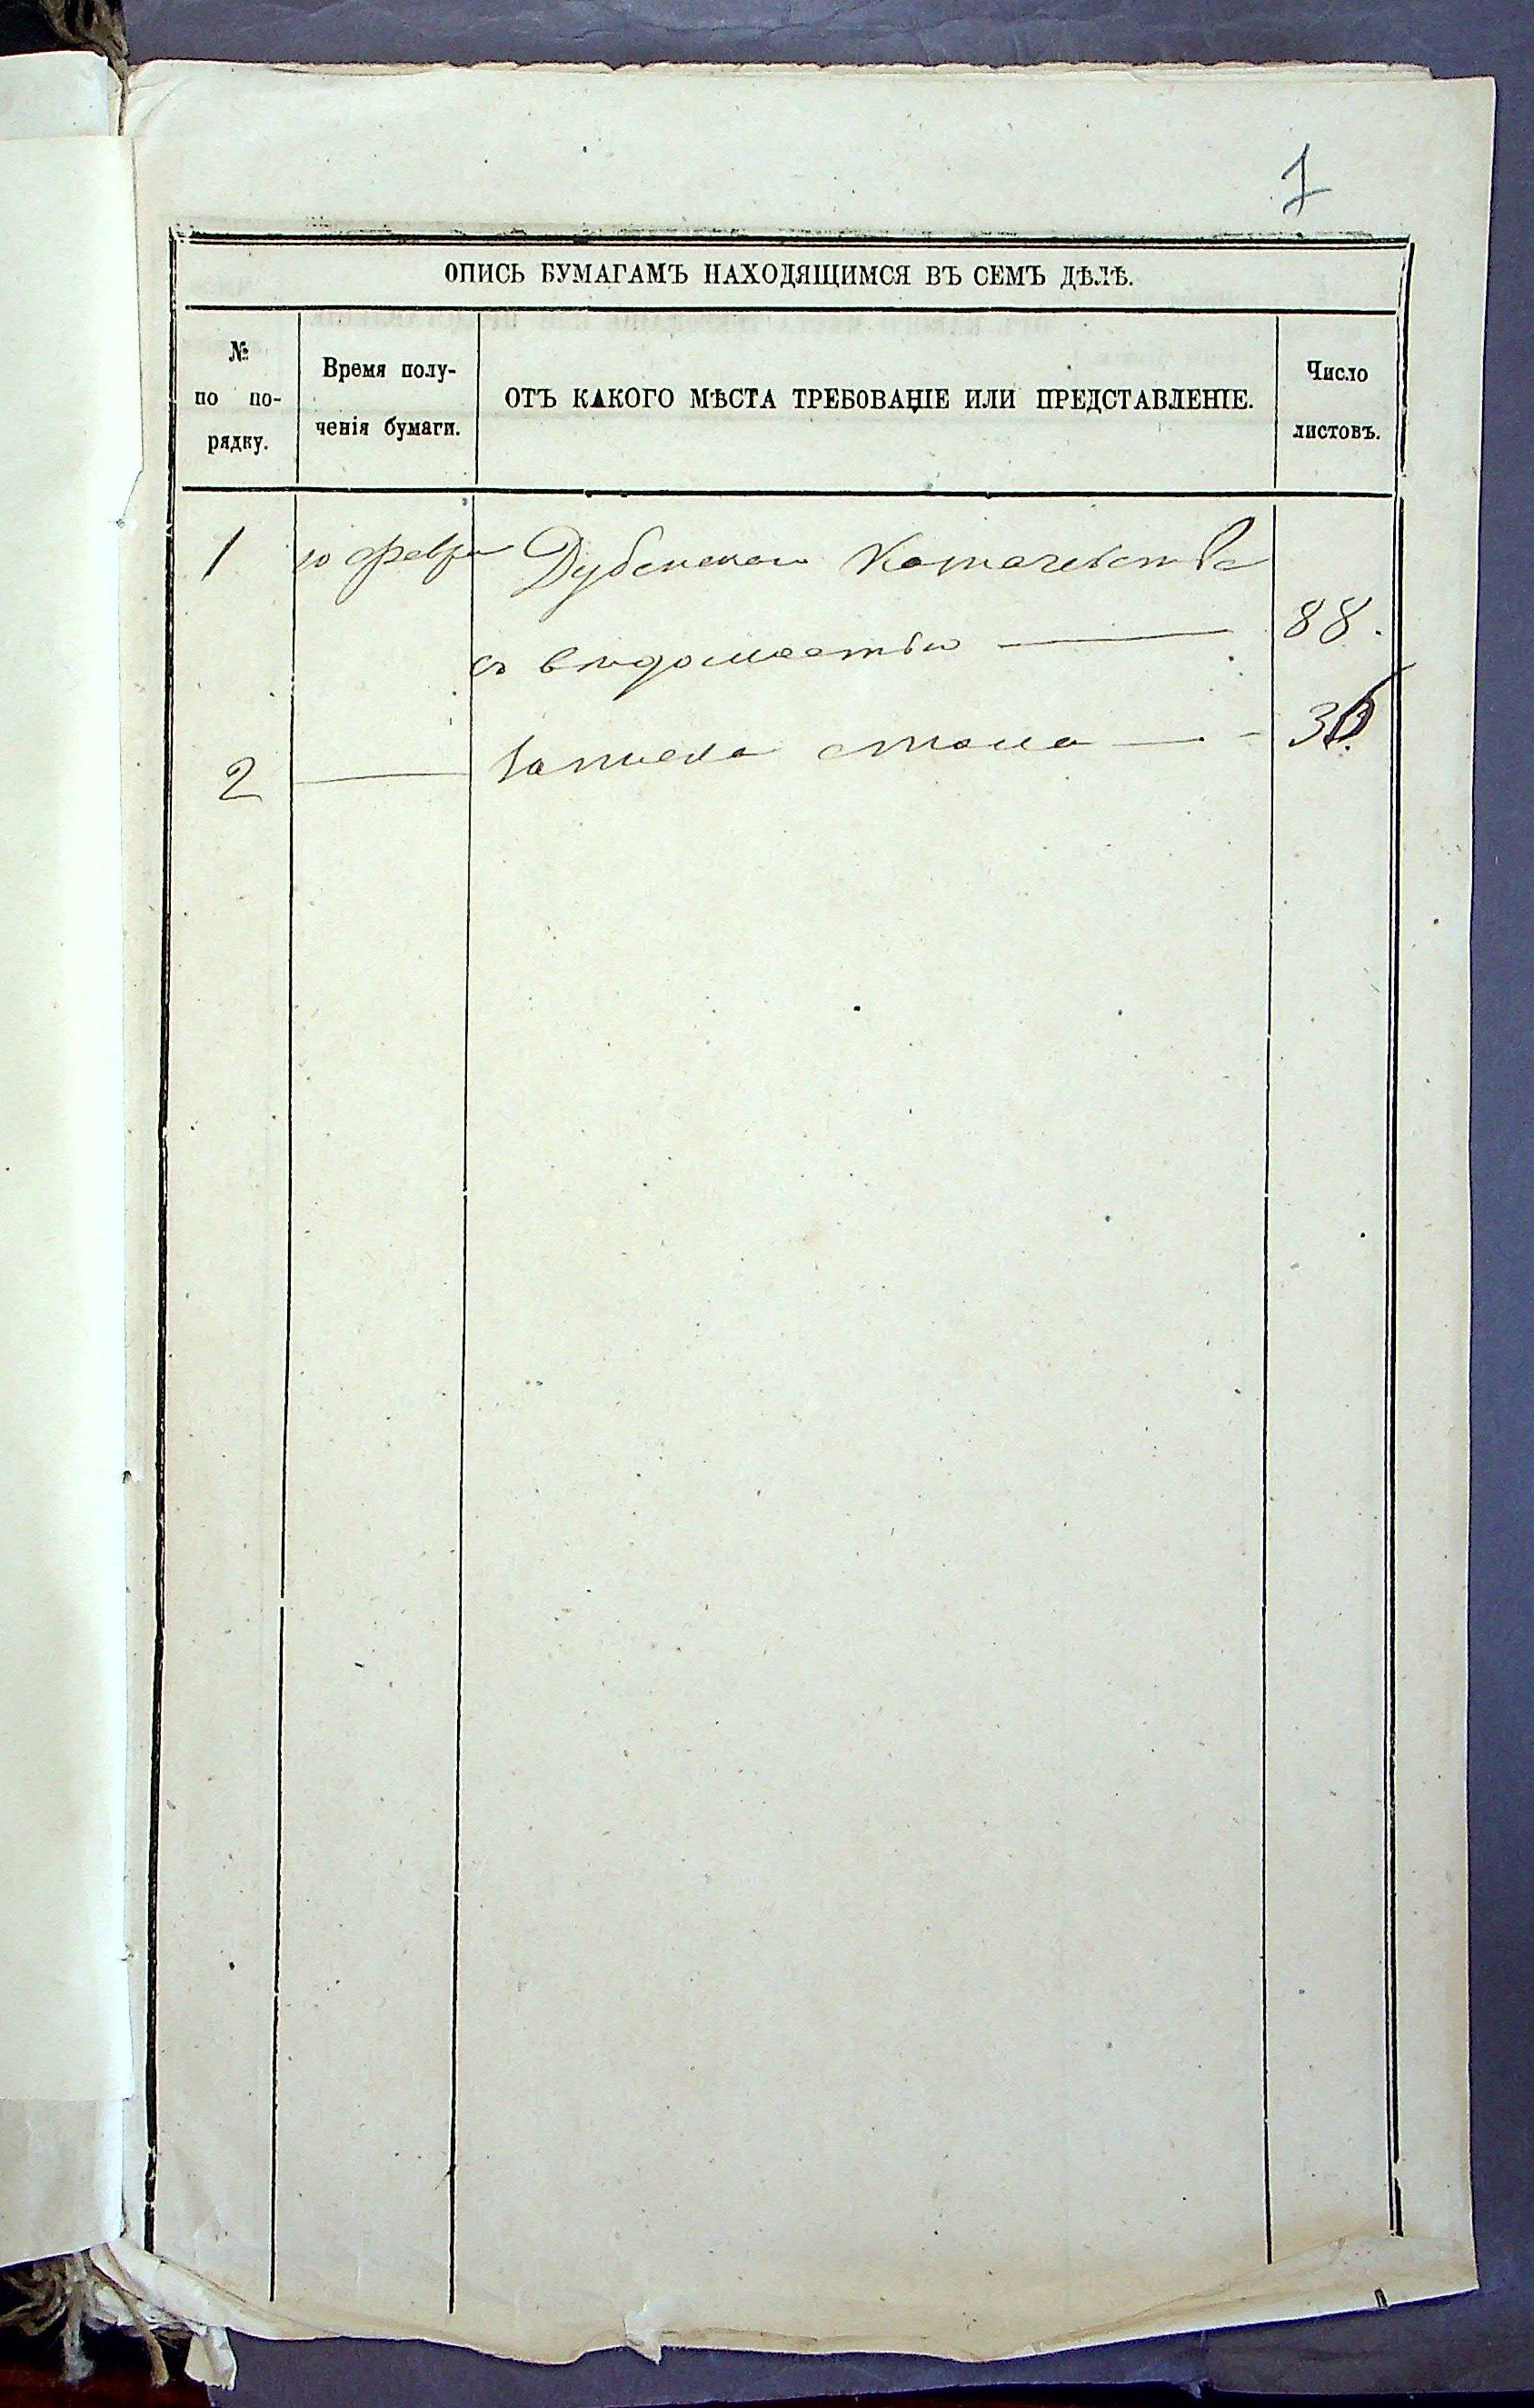 1
ОПИСЬ БУМАГАМЪ НАХОДЯЩИМСЯ ВЪ СЕМЪ ДѢЛѢ.
№ по по-рядку.
Время полу-ченія бумаги.
ОТЪ КАКОГО МѢСТА ТРЕБОВАНІЕ ИЛИ ПРЕДСТАВЛЕНІЕ.
Число листовъ.
1 10 февра Дубенскаго Казначейства
съ вѣдомостью 88.
2 Записка стола